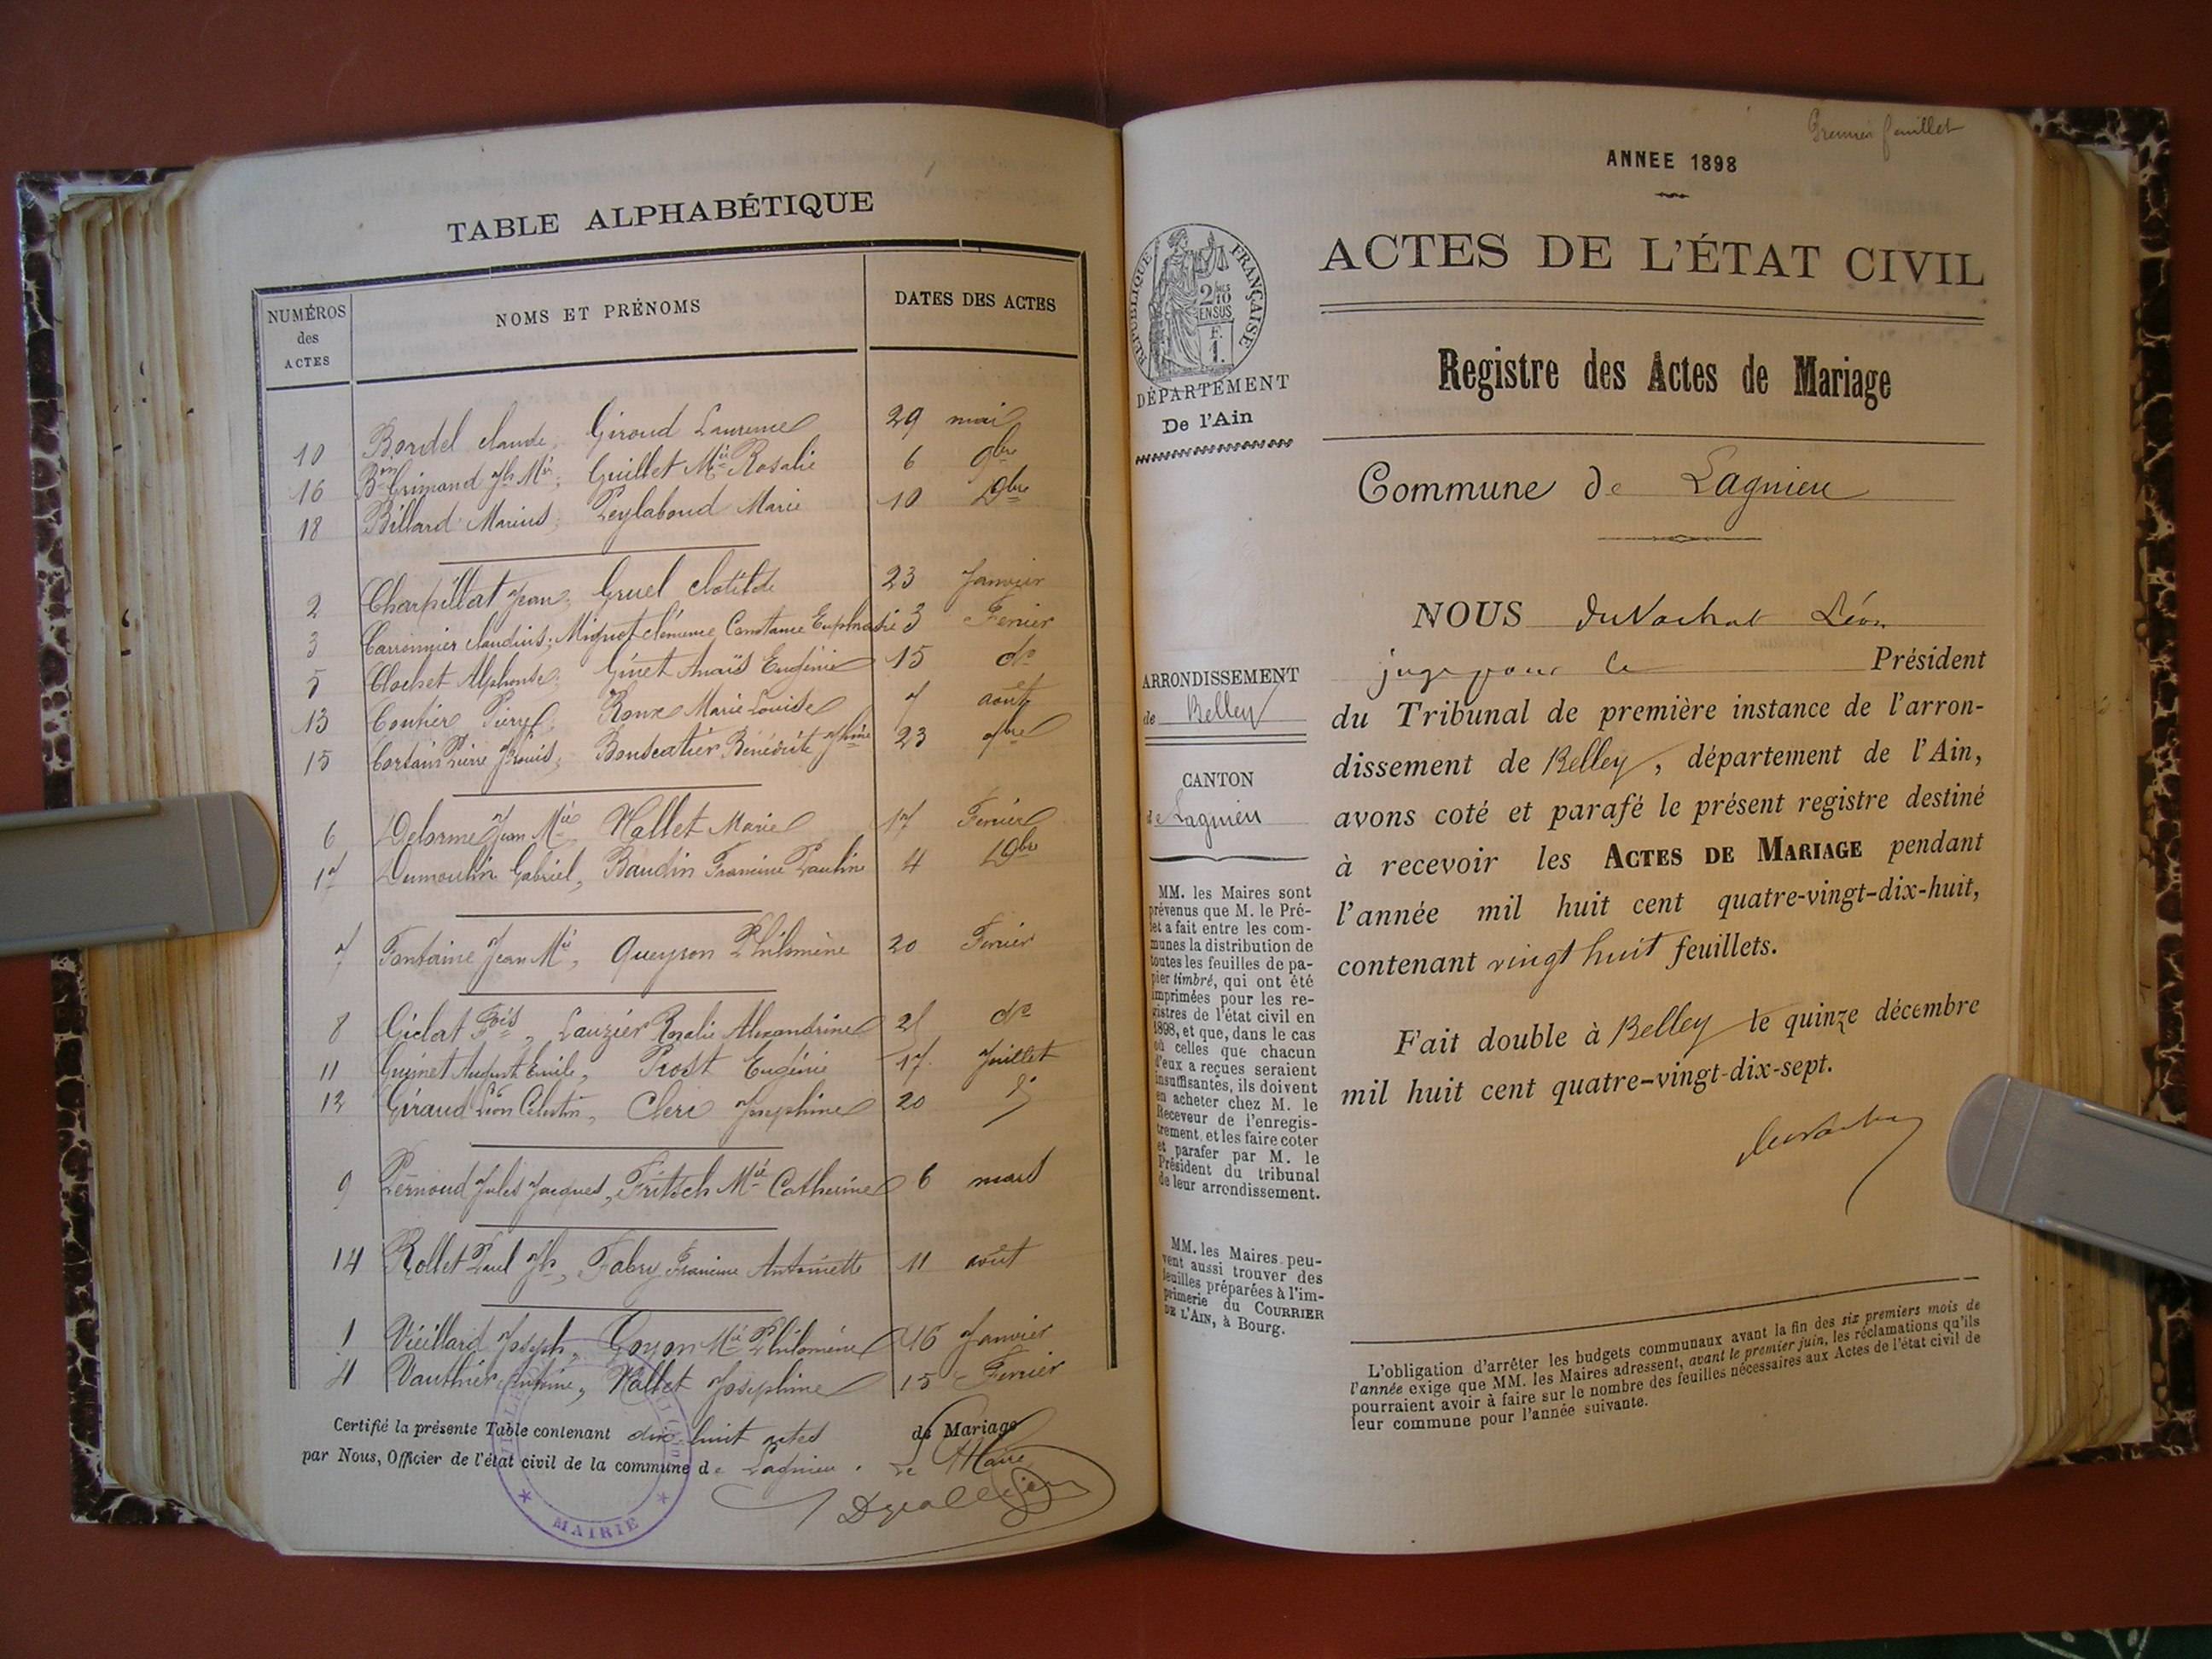 TABLE ALPHABÉTIQUE
NUMÉROS des ACTES
NOMS ET PRÉNOMS
DATES DES ACTES
10 Bordel Claude, Giroud Laurence 29 mai
16 Grimand Jh Mie, Guillet Mie Rosalie 6 9bre
18 Billard Marius, Peylaboud Marie 10 Xbre
2 Charpillat Jean, Gruel Clotilde 23 Janvier
3 Carronnier Claudius, Miguet Clémence Constance Euphrasie 3 Fevrier
5 Clochet Alphonse, Ginet Anaïs Eugénie 15 do
13 Couhier Pierre, Roux Marie Louise 7 août
15 Pierre, Bénédicte 23 7bre
6 Delorme Jean Mie Vallet Marie 17 Fevrier
17 Dumoulin Gabriel, Baudin Francine Pauline 4 Xbre
7 Fontaine Jean Mie, Queyson Philomène 20 Fevrier
8 Giclat Fcis, Lauzier Rosalie Alexandrine 21 do
11 Guinet August Emile, Prost Eugénie 17 Juillet
12 Giraud Léon Célestin, Clerc Joséphine 20
9 Pernoud Jules Jacques, Fritsch Mie Catherine 6 mars
14 Rollet Paul Jh, Fabry Francine Antoinette 11 août
1 Vieillard Joseph, Goyon Mie Philomène 16 Janvier
4 Vauthier Antoine, Vallet Joséphine 15 Fevrier
Certifié la présente Table contenant dix huit actes de Mariage
par Nous, Officier de l'état civil de la commune de Lagnieu. Le Maire
MAIRIE
Premier feuillet
ANNEE 1898
ACTES DE L'ÉTAT CIVIL
Registre des Actes de Mariage
Commune de Lagnieu
NOUS DuVachat Léon
juge pour le Président
du Tribunal de première instance de l'arron-
dissement de Belley, département de l'Ain,
avons coté et parafé le présent registre destiné
à recevoir les ACTES DE MARIAGE pendant
l'année mil huit cent quatre-vingt-dix-huit,
contenant vingt huit feuillets.
Fait double à Belley le quinze décembre
mil huit cent quatre-vingt-dix-sept.
L'obligation d'arrêter les budgets communaux avant la fin des six premiers mois de
l'année exige que MM. les Maires adressent, avant le premier juin, les réclamations qu'ils
pourraient avoir à faire sur le nombre des feuilles nécessaires aux Actes de l'état civil de
leur commune pour l'année suivante.
RÉPUBLIQUE FRANÇAISE
2/10
EN SUS
F.
1.
DÉPARTEMENT
De l'Ain
ARRONDISSEMENT
de Belley
CANTON
de Lagnieu
MM. les Maires sont
prévenus que M. le Pré-
fet a fait entre les com-
munes la distribution de
toutes les feuilles de pa-
pier timbré, qui ont été
imprimées pour les re-
gistres de l'état civil en
1898, et que, dans le cas
où celles que chacun
d'eux a reçues seraient
insuffisantes, ils doivent
en acheter chez M. le
Receveur de l'enregis-
trement, et les faire coter
et parafer par M. le
Président du tribunal
de leur arrondissement.
MM. les Maires peu-
vent aussi trouver des
feuilles préparées à l'im-
primerie du COURRIER
DE L'AIN, à Bourg.